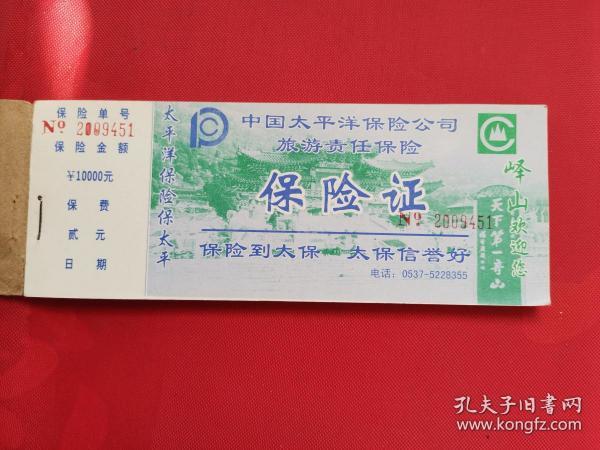 保险单号
Nº 2009451
保险金额
￥10000元
保费
贰元
日期
太平洋保险保太平
中国太平洋保险公司
旅游责任保险
保险证
Nº 2009451
保险到太保 太保信誉好
电话：0537-5228355
峄山欢迎您
天下第一奇山
孔夫子旧书网
www.kongfz.com